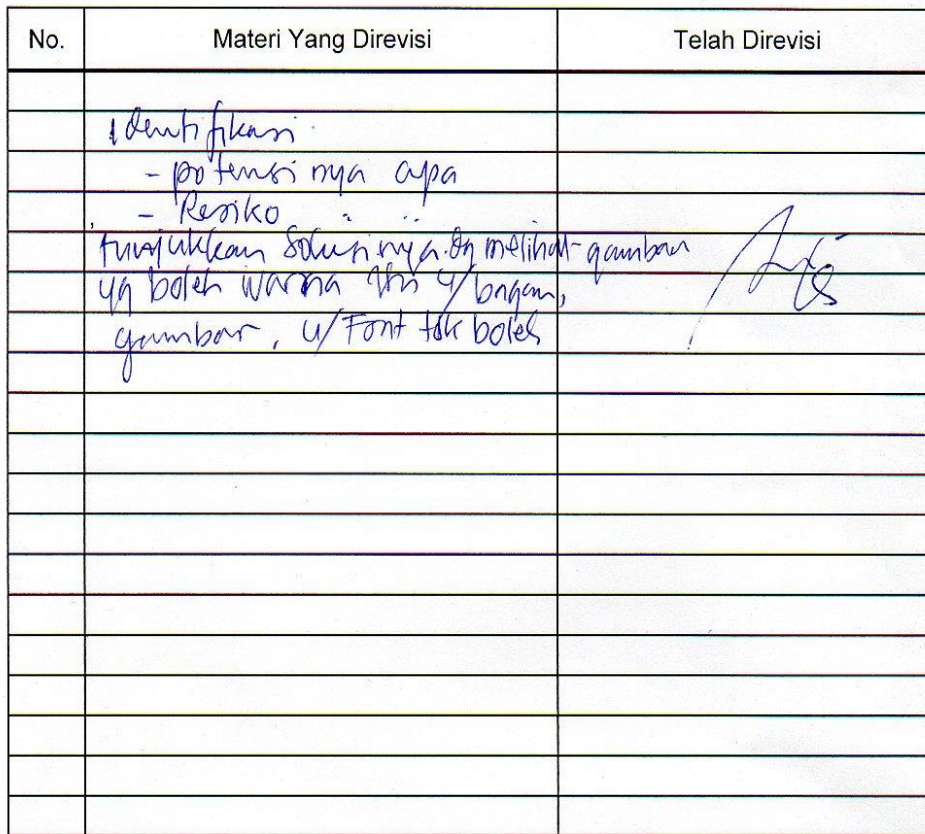 No. Materi Yang Direvisi Telah Direvisi
Identifikasi
- potensi nya apa
- Resiko
tunjukkan Solusi nya. dg melihat gambar
yg boleh warna u/ bagan,
gambar, u/ Font tdk boleh